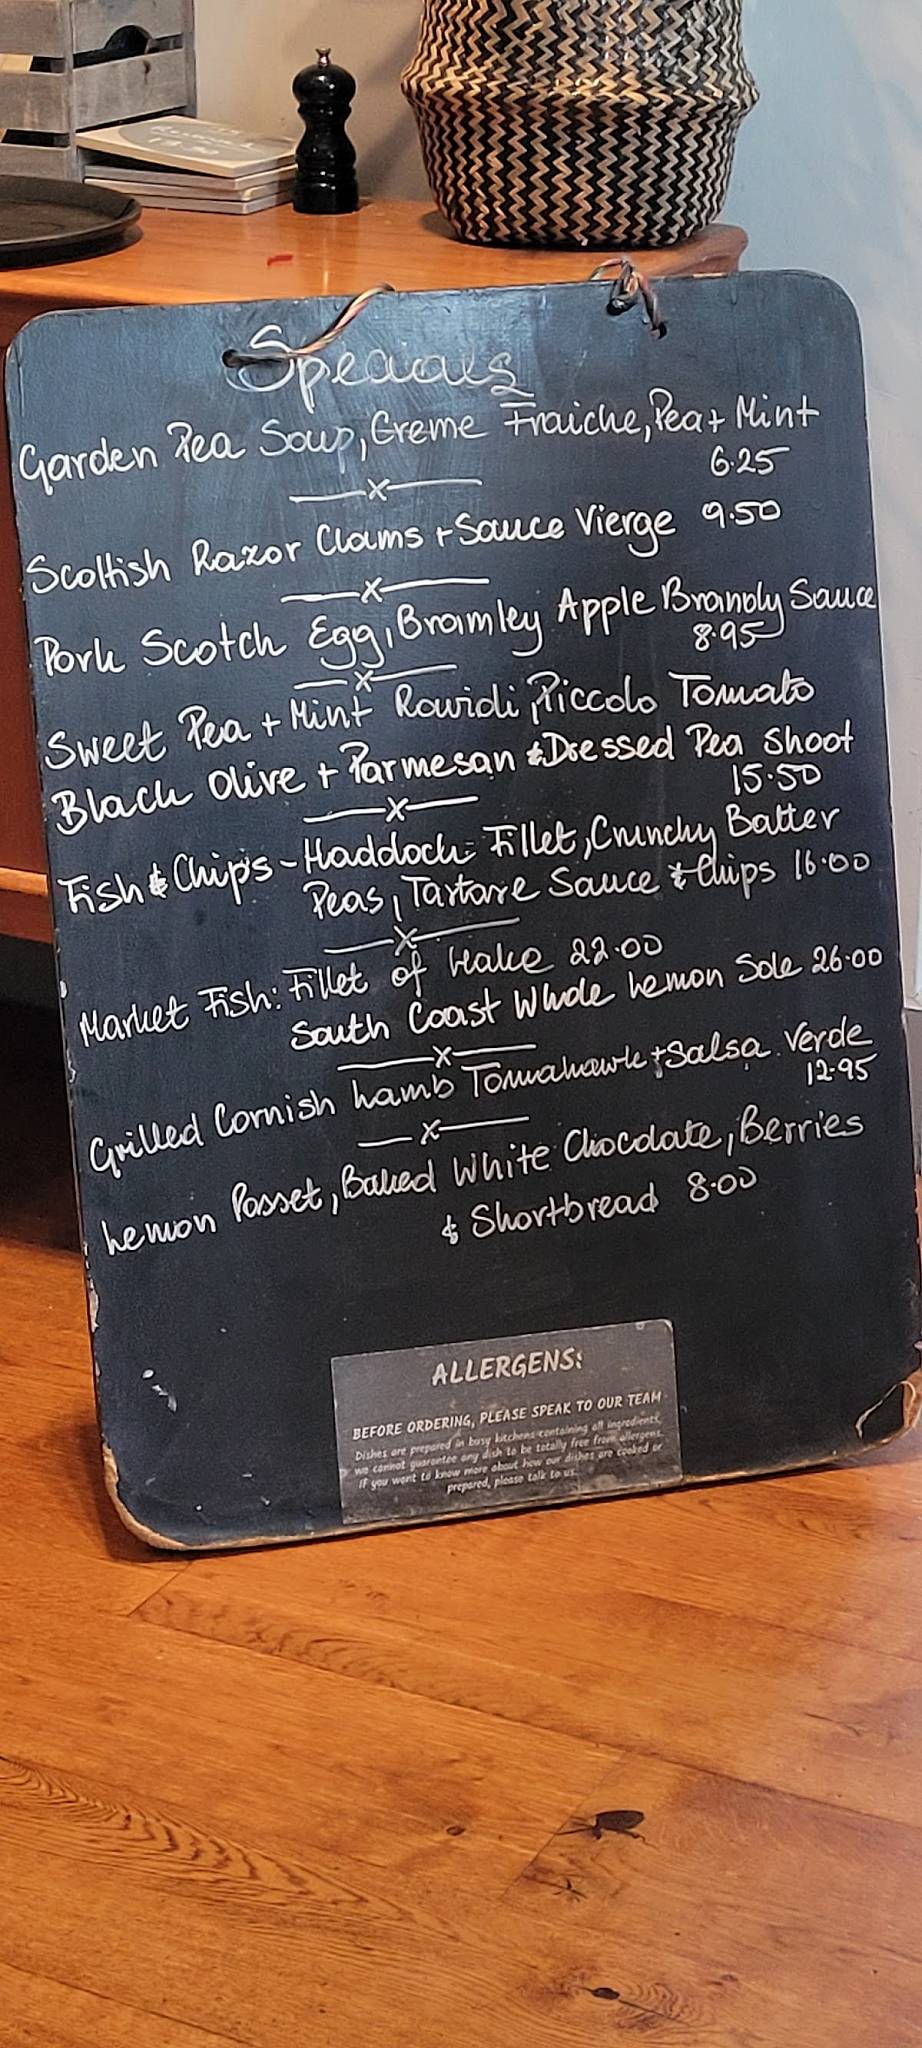 Specials
Garden Pea Soup, Creme Fraiche, Pea + Mint
6.25
Scottish Razor Clams + Sauce Vierge 9.50
Pork Scotch Egg, Bramley Apple Brandy Sauce
8.95
Sweet Pea + Mint Ravidi, Piccolo Tomato
Black Olive + Parmesan & Dressed Pea Shoot
15.50
Fish & Chips - Haddock Fillet, Crunchy Batter
Peas, Tartare Sauce & Chips 16.00
Market Fish: Fillet of Hake 22.00
South Coast Whole Lemon Sole 26.00
Grilled Cornish Lamb Tomahawk + Salsa Verde
12.95
Lemon Posset, Baked White Chocolate, Berries
& Shortbread 8.00
ALLERGENS:
BEFORE ORDERING, PLEASE SPEAK TO OUR TEAM
Dishes are prepared in busy kitchens containing all ingredients,
we cannot guarantee any dish to be totally free from allergens.
IF you want to know more about how our dishes are cooked or
prepared, please talk to us.